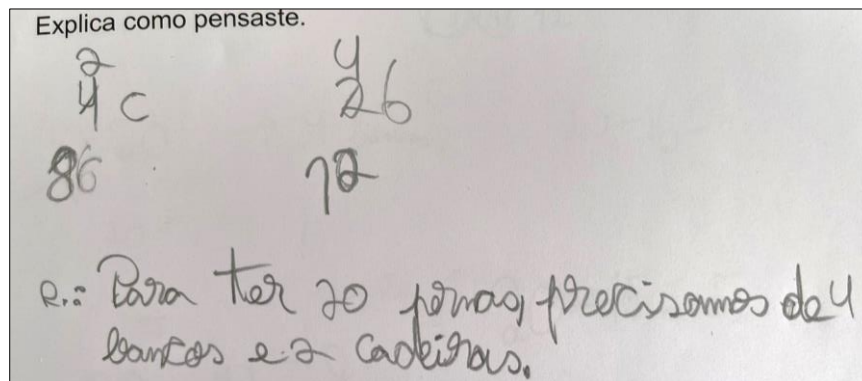 Explica como pensaste.
2 4
4 c 2 b
8 12
R.: Para ter 20 pernas, precisamos de 4
bancos e 2 cadeiras.